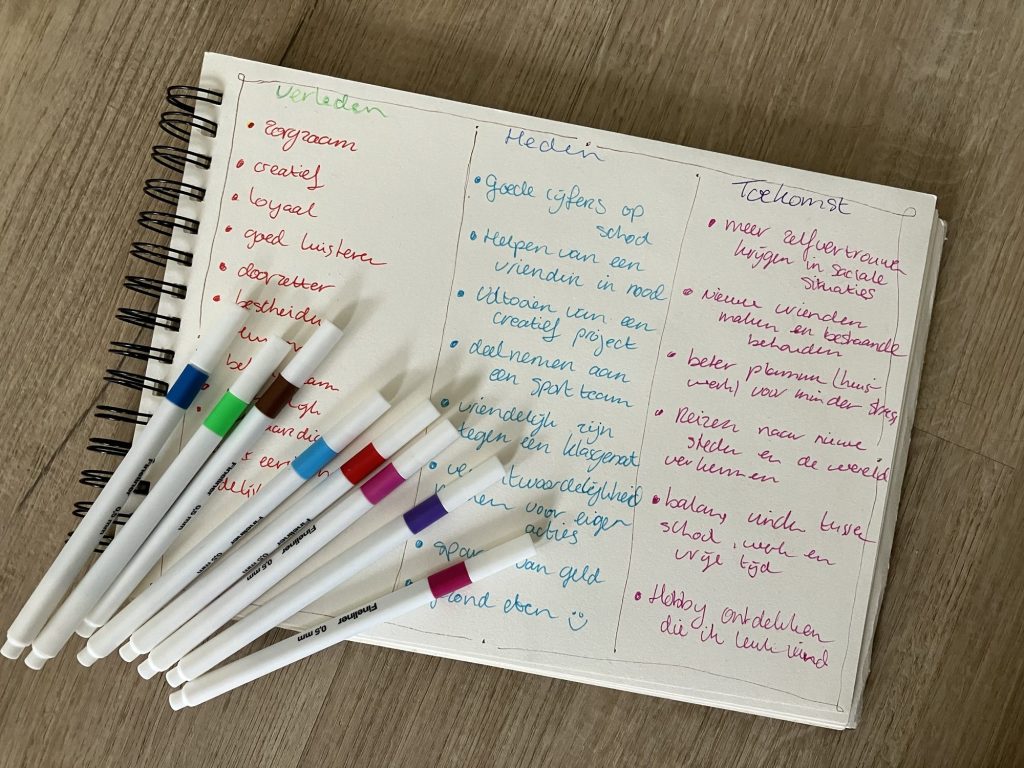 verleden
• zorgzaam
• creatief
• loyaal
• goed luisteren
• doorzetter
Heden
• Goede cijfers op
school
• Helpen van een
vriendin in nood
• Voltooien van een
creatief project
• deelnemen aan
een sport team
• vriendelijk zijn
tegen een klasgenoot
van geld
eten
Toekomst
• meer zelfvertrouwen
krijgen in sociale
situaties
• Nieuwe vrienden
maken en bestaande
behouden
• beter plannen (huis-
werk) voor minder stress
• Reizen naar nieuwe
steden en de wereld
verkennen
• balans vinden tussen
school, werk en
vrije tijd
• Hobby ontdekken
die ik leuk vind
Fineliner
Fineliner
0,5 mm
Fineliner 0,5 mm
Fineliner 0,5 mm